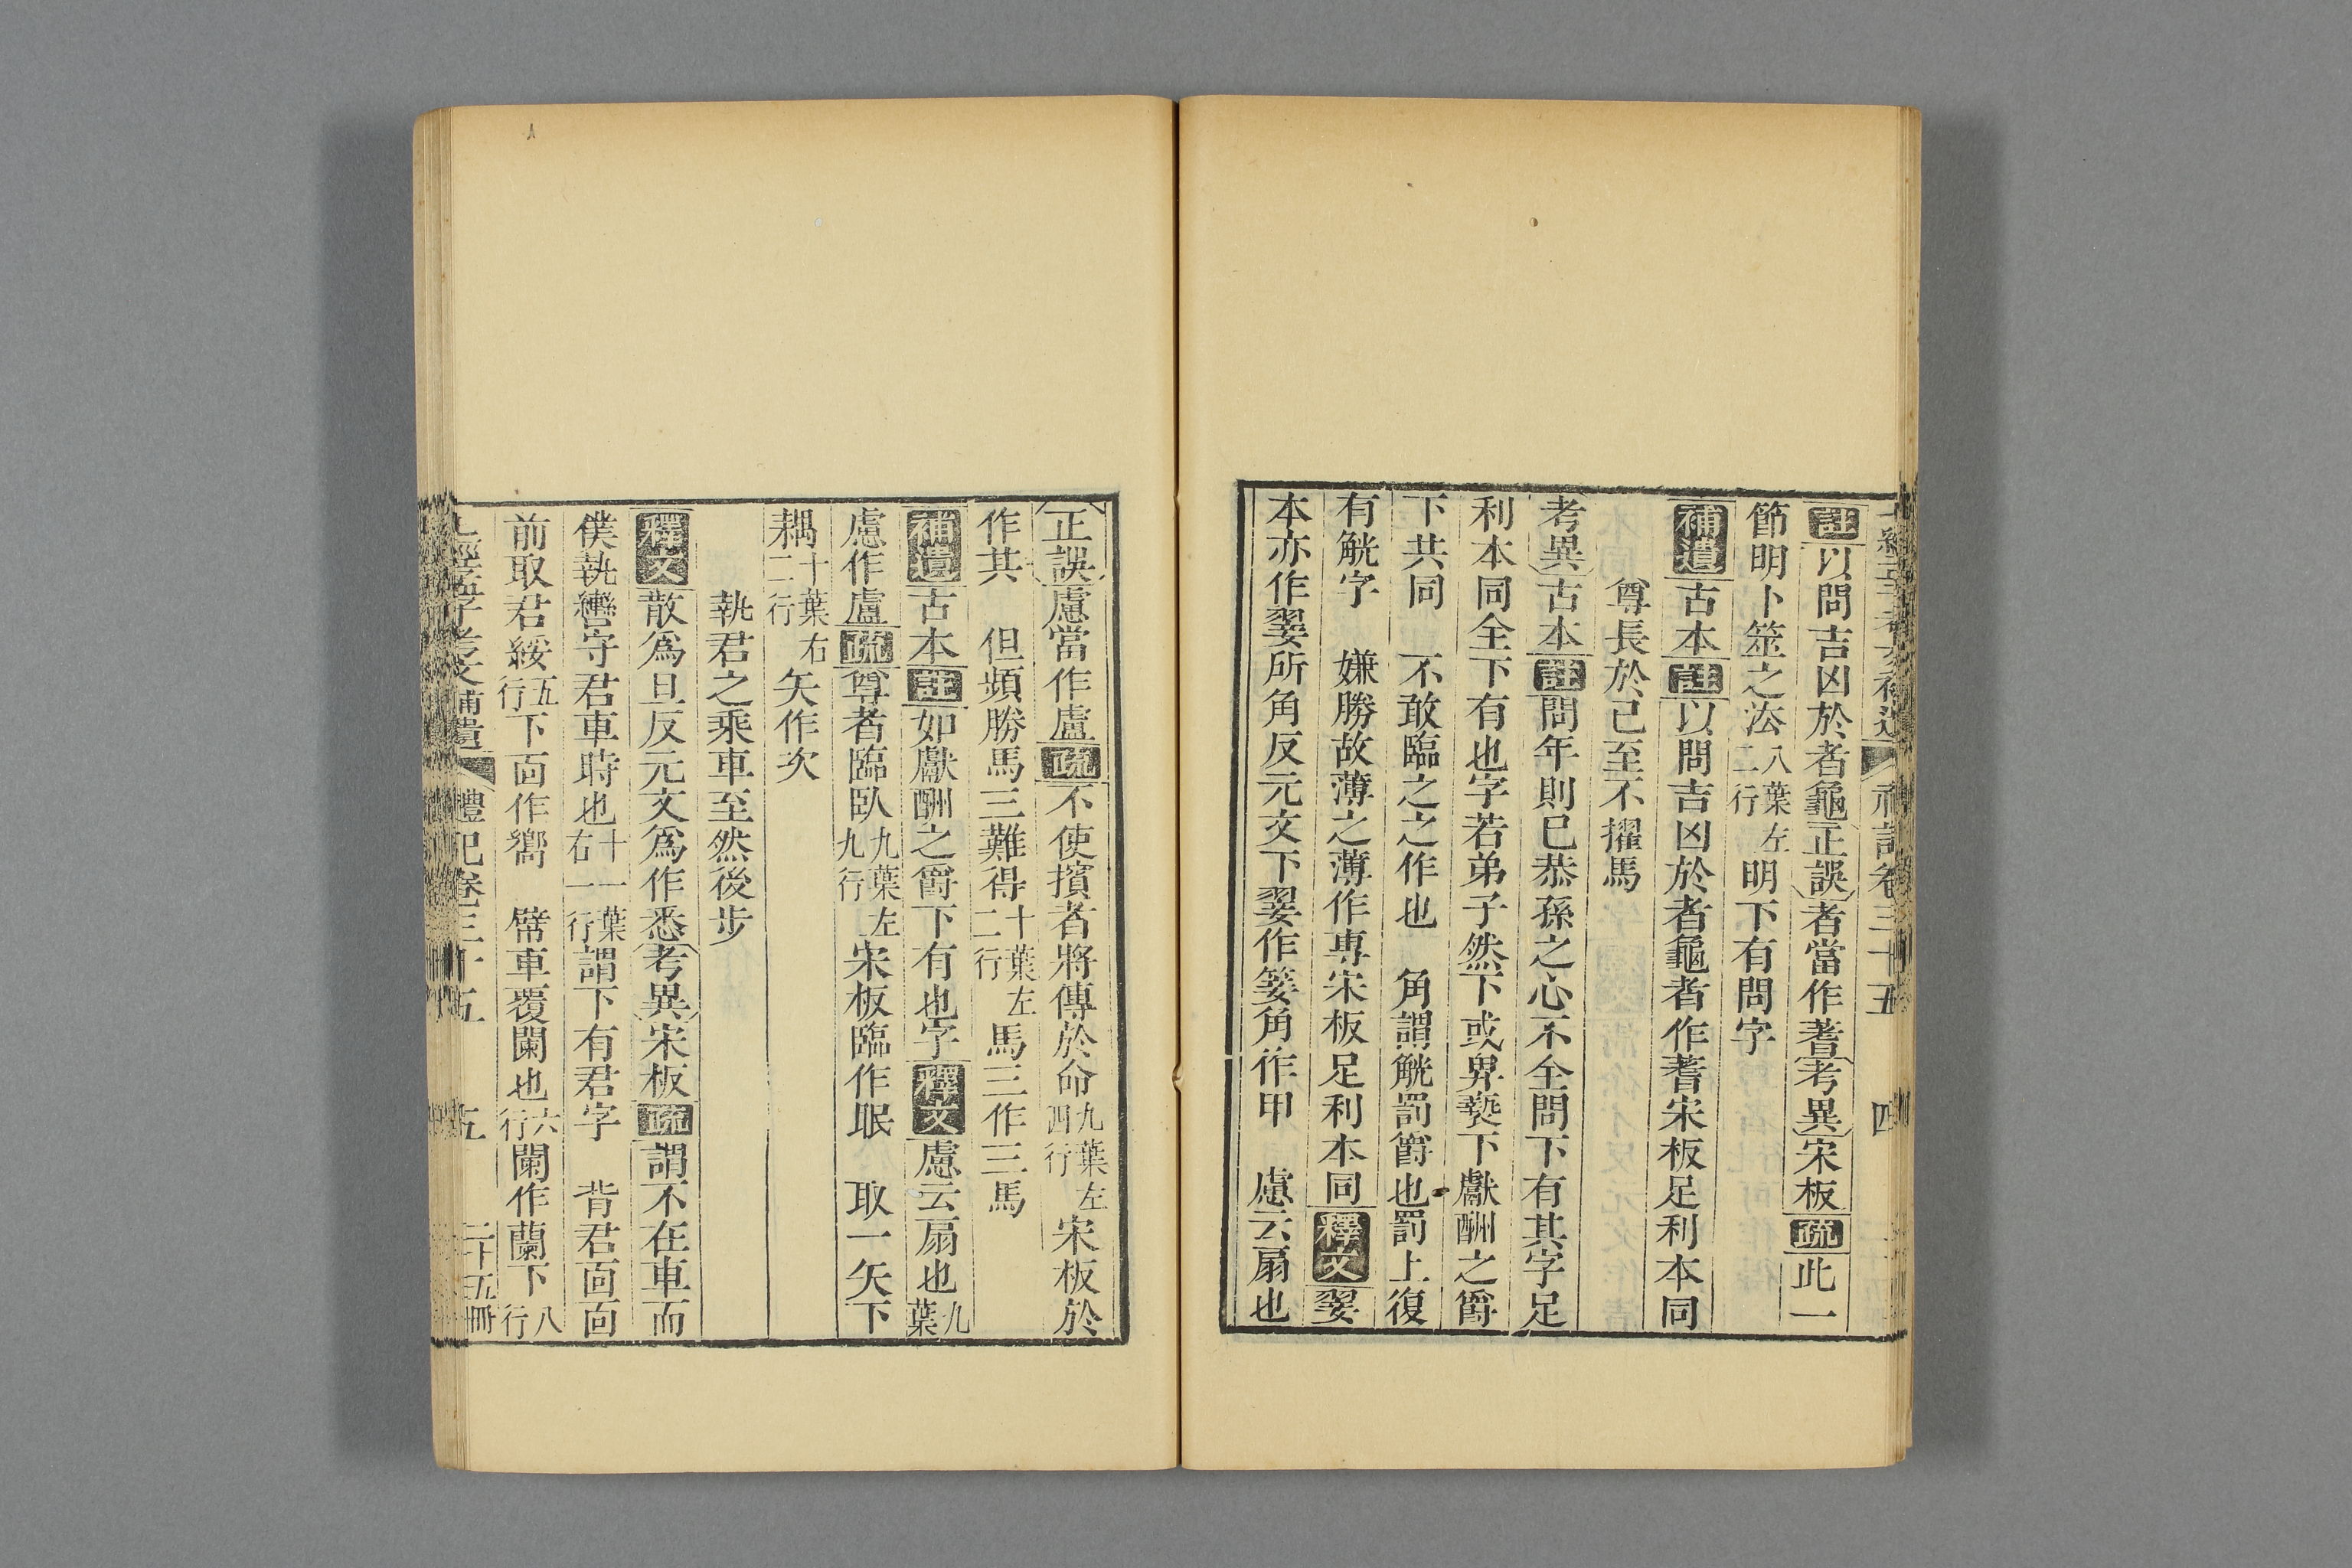 七經孟子考文補遺 禮記卷三十五 四
註以問吉凶於者龜正誤者當作蓍考異宋板疏此一
節明卜筮之法八葉左二行明下有問字
補遺古本註以問吉凶於者龜者作蓍宋板足利本同
尊長於己至不擢馬
考異古本註問年則已恭孫之心不全問下有其字足
利本同全下有也字若弟子然下或卑褻下獻酬之爵
下共同 不敢臨之之作也 角謂觥罰爵也罰上復
有觥字 嫌勝故薄之薄作專宋板足利本同釋文翣
本亦作翣所角反元文下翣作箑角作甲 慮云扇也
正誤慮當作盧疏不使擯者將傳於命九葉左四行宋板於
作其 但頻勝馬三難得十葉左二行馬三作三馬
補遺古本註如獻酬之爵下有也字釋文慮云扇也九葉
慮作盧疏尊者臨臥九葉左九行宋板臨作眠 取一矢下
耦十葉右二行矢作次
執君之乘車至然後步
釋文散爲旦反元文爲作悉考異宋板疏謂不在車而
僕執轡守君車時也十一葉右一行謂下有君字 背君面向
前取君綏五行下面作嚮 幦車覆闌也六行闌作蘭下八行
七經孟子考文補遺 禮記卷三十五 五 二十五冊